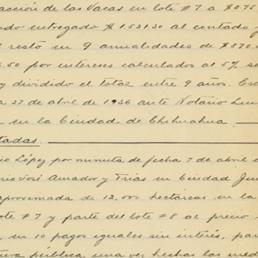 acción de las Vacas en lote #7 a $0.75
ado entregado $1,531.30 al contado y
l resto en 9 anualidades de $570.
.50 por intereses calculados al 5% se
y dividido el total entre 9 años. Esc
a 27 de abril de 1936 ante Notario Lui
en la Ciudad de Chihuahua.
tadas.
io López por minuta de fecha 7 de abril d
rio José Amador y Trías en Ciudad Jua
aproximada de 12,000 hectáreas en la
ote #7 y parte del lote #8 al precio
en 10 pagos iguales sin interés, par
tura pública una vez hechas las med